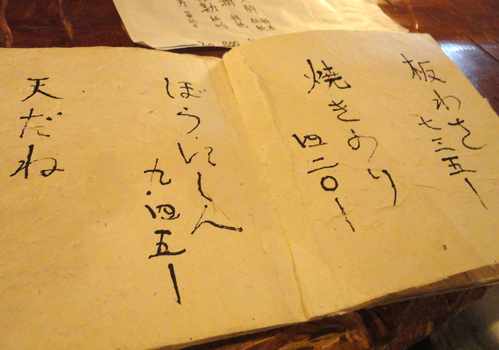 板わさ
七三五ー
焼きのり
四二〇ー
ぼう・にしん
九・四五ー
天だね